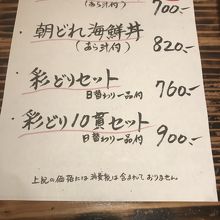 (あら汁付) 700.-
朝どれ海鮮丼
(あら汁付) 820.-
彩どりセット
日替わり一品付 760.-
彩どり10貫セット
日替わり一品付 900.-
上記の価格には消費税は含まれておりません